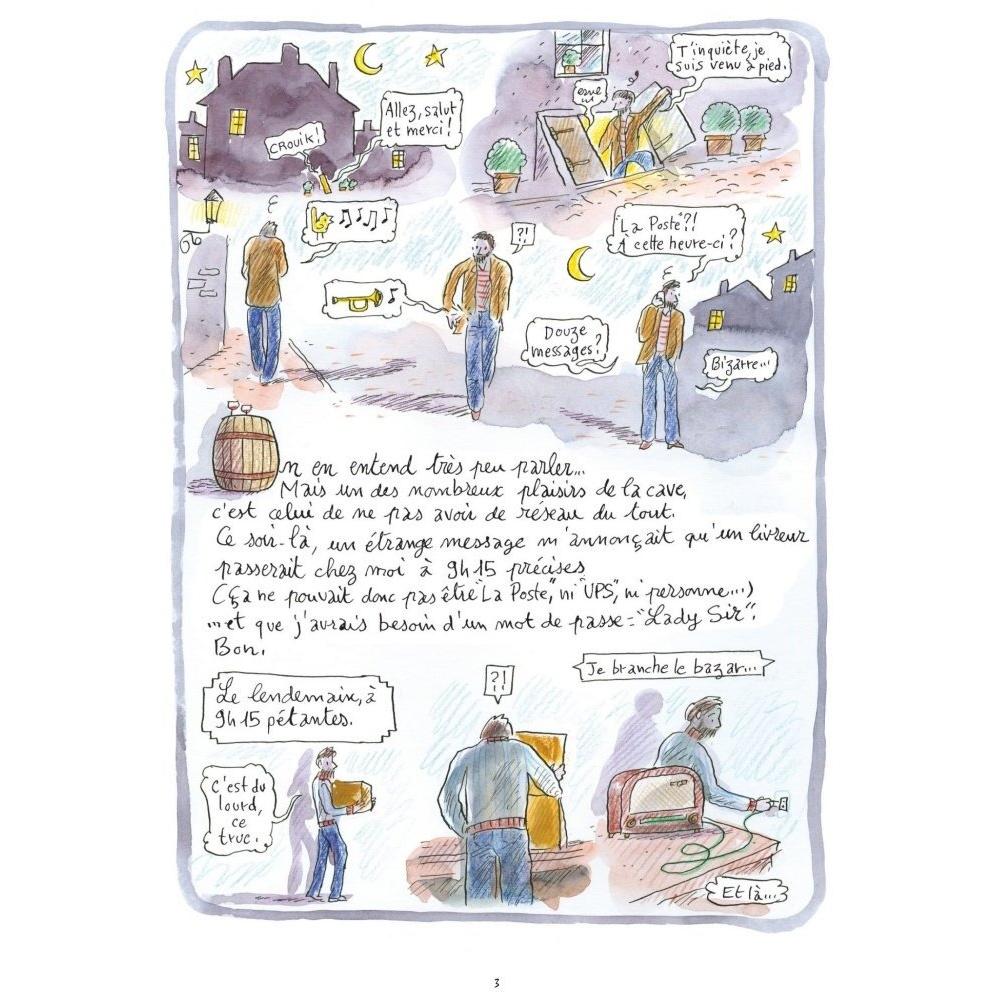 CROUIK!
Allez, salut
et merci!
T'inquiète, je
suis venu à pied.
?!
Douze
messages?
"La Poste"?!
À cette heure-ci?
Bizarre...
n en entend très peu parler...
Mais un des nombreux plaisirs de la cave,
c'est celui de ne pas avoir de réseau du tout.
Ce soir-là, un étrange message m'annonçait qu'un livreur
passerait chez moi à 9h15 précises
(Ça ne pouvait donc pas être "La Poste", ni "UPS", ni personne...)
...et que j'aurais besoin d'un mot de passe = "Lady Sir".
Bon.
Le lendemain, à
9h15 pétantes.
C'est du
lourd,
ce
truc.
?!
Je branche le bazar...
Et là...
3